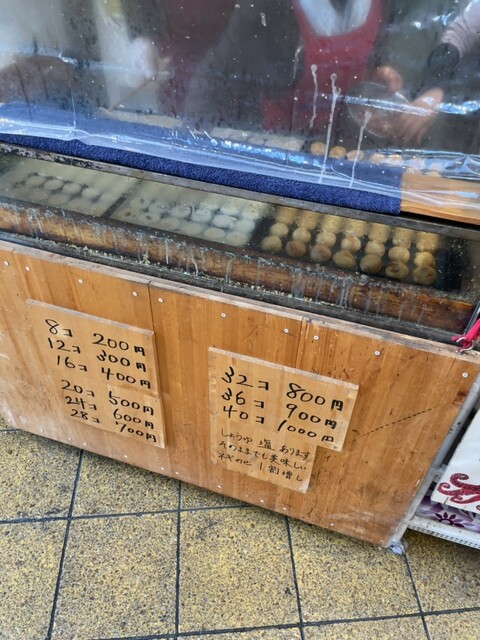 8コ 200円
12コ 300円
16コ 400円
20コ 500円
24コ 600円
28コ 700円
32コ 800円
36コ 900円
40コ 1000円
しょうゆ 塩 あります
そのままでも美味しい
ネギのせ 1割増し